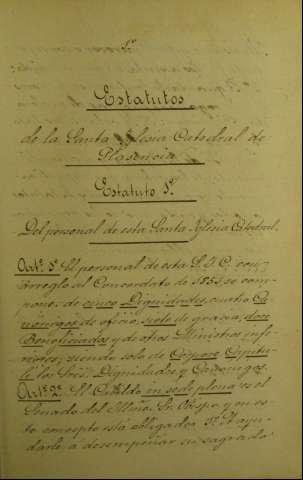 1º
Estatutos
de la Santa Iglesia Catedral de
Plasencia
Estatuto 1º
Del personal de esta Santa Iglesia Catedral.
Artº 1º El personal de esta S. I. C. con
arreglo al Concordato de 1851, se com-
pone de cinco Dignidades, cuatro Ca-
nongías de oficio, siete de gracia, doce
Beneficiados y de otros Ministros infe-
riores; siendo solo de Córpore Cápitu-
li los Sres. Dignidades y Canónigos.
Artº 2º El Cabildo in sede plena es el
Senado del Iltmo. Sr. Obispo y en es-
te concepto está obligado: 1º A ayu-
darle á desempeñar su sagrado